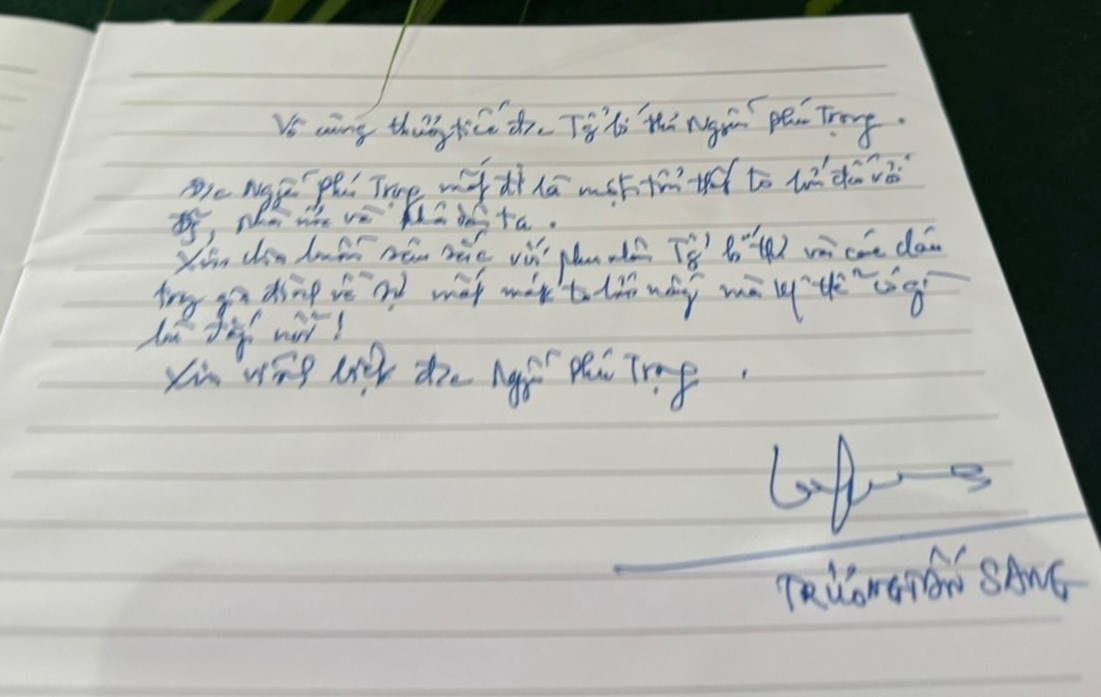 Vô cùng thương tiếc đ/c Tổng bí thư Nguyễn Phú Trọng.
Đ/c Nguyễn Phú Trọng mất đi là một tổn thất to lớn đối với
Đảng, nhà nước và nhân dân ta.
Xin chia buồn sâu sắc với phu nhân Tổng bí thư và các cháu
trong gia đình về sự mất mát to lớn này mà không thể có gì
bù đắp nổi!
Xin vĩnh biệt đ/c Nguyễn Phú Trọng.
TRƯƠNG TẤN SANG